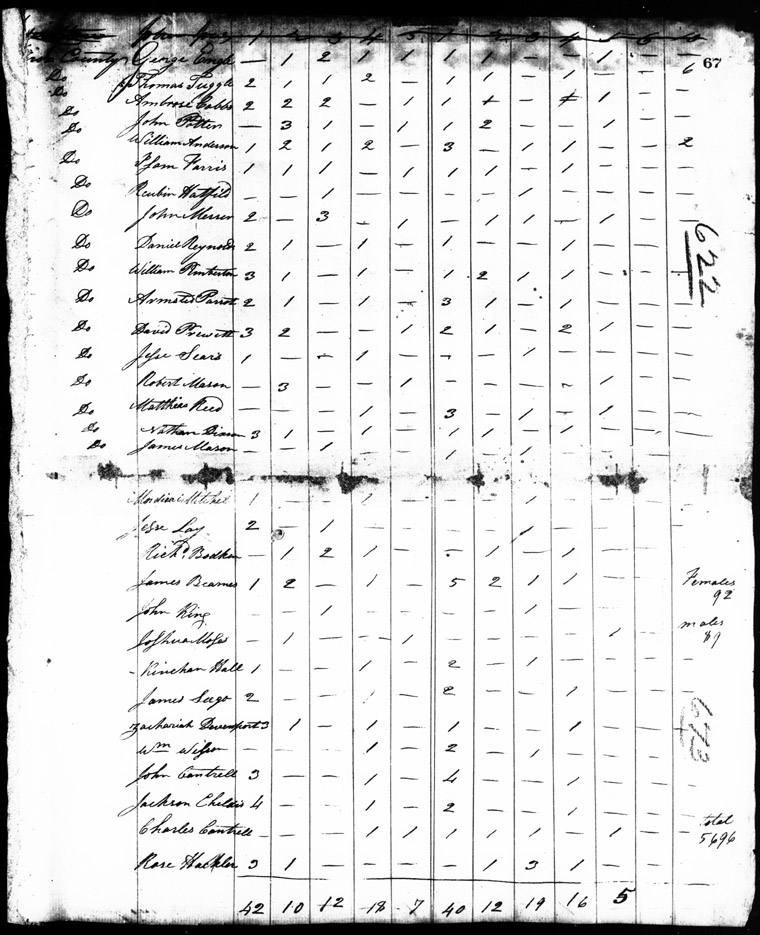 1 2 3 4 5 1 2 3 4 5 6
67
County George Engle — 1 2 1 1 1 1 — 1 — —
Do Thomas Tuggle 2 1 1 2 — 1 1 — 1 — — 6
Do Ambrose Cobbs 2 2 2 — 1 1 — 1 — —
Do John Potter — 3 1 — 1 1 2 — — 1 — —
Do William Anderson 1 2 1 2 — 3 — 1 1 — — 2
Do Isom Farris 1 1 1 — 1 1 1 1 1 — —
Do Reubin Hatfild — — 1 — — — — 1 — — —
Do John Messer 2 — 3 — 1 — 1 1 — 1 — —
622
Do Daniel Reynolds 2 1 — 1 — 1 — — 1 — —
Do William Pemberton 3 1 — 1 — 1 2 1 1 — —
Do Armsted Parrott 2 1 — 1 — 3 1 — 1 — —
Do David Prewett 3 2 — — 1 2 1 — 2 1 — —
Do Jesse Sears 1 — — 1 — — — 1 — — —
Do Robert Mason — 3 — — 1 — — — — 1 — —
Do Matthias Reed — — — 1 — 3 — 1 — 1 — —
Do Nathan 3 1 — 1 — 1 1 1 1 — —
Do James Mason — — 1 — — 1 — 1 — — —
Mitchel 1 1
Jesse Lay 2 — 1 — — — — 1 — — —
Richd. Bodkin — 1 2 1 — 1 — 1 — —
James Beames 1 2 — 1 — 5 2 1 1 — —
Females
92
John King — — 1 — — — — 1 — — —
males
89
Joshua Moses — 1 — — 1 — — — — 1 — —
Kinchan Hall 1 — — 1 — 2 — 1 — — —
James Sego 2 — — — — 2 — — 1 — —
673
Zachariah Davenport 3 1 — 1 — 1 — — 1 — —
Wm Wilson — — — 1 — 2 — 1 — — —
John Cantrell 3 — — 1 — 4 — — 1 — —
Jackson Childis 4 — — 1 — 2 — — 1 — —
total
5696
Charles Cantrell — — — 1 1 1 1 1 — 1 — —
Rose Hackler 3 1 — — — — 1 3 1 — —
42 10 12 18 7 40 12 19 16 5